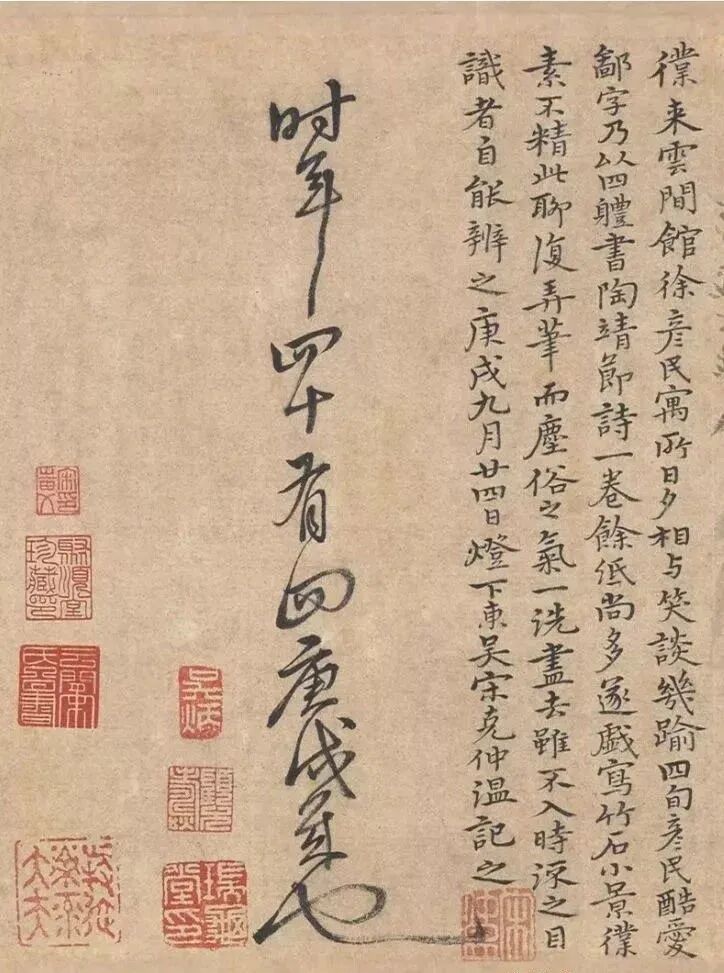 僕来雲間館徐彦民寓所日夕相与笑談幾踰四旬彦民酷愛
鄙字乃以四體書陶靖節詩一卷餘紙尚多遂戲寫竹石小景僕
素不精此聊復弄筆而塵俗之氣一洗盡去雖不入時深之目
識者自能辨之庚戌九月廿四日燈下東吳宋克仲温記之
时年四十有四庚戌歲也
吳炳